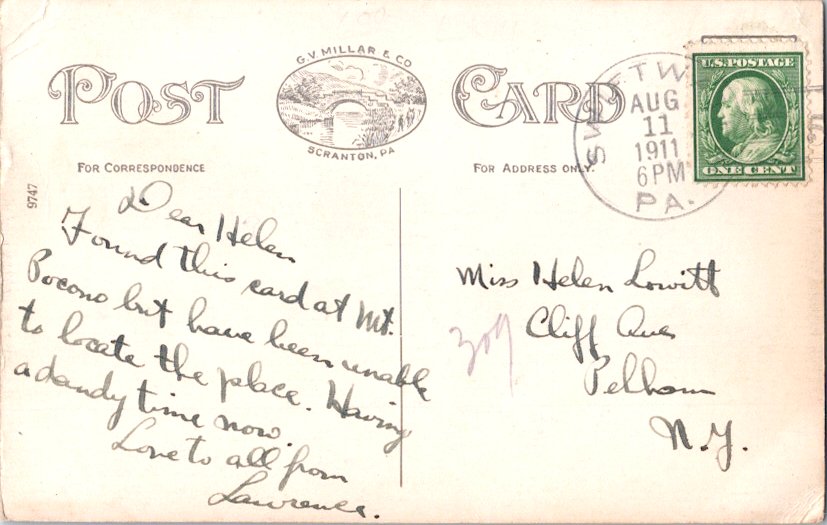 POST CARD
G.V. MILLAR & CO
SCRANTON, PA
FOR CORRESPONDENCE
FOR ADDRESS ONLY.
9747
AUG
11
1911
6 PM
PA.
U.S. POSTAGE
ONE CENT
Dear Helen
Found this card at Mt.
Pocono but have been unable
to locate the place. Having
a dandy time now.
Love to all from
Lawrence.
Miss Helen Lowitt
Cliff Ave
Pelham
N.Y.
309